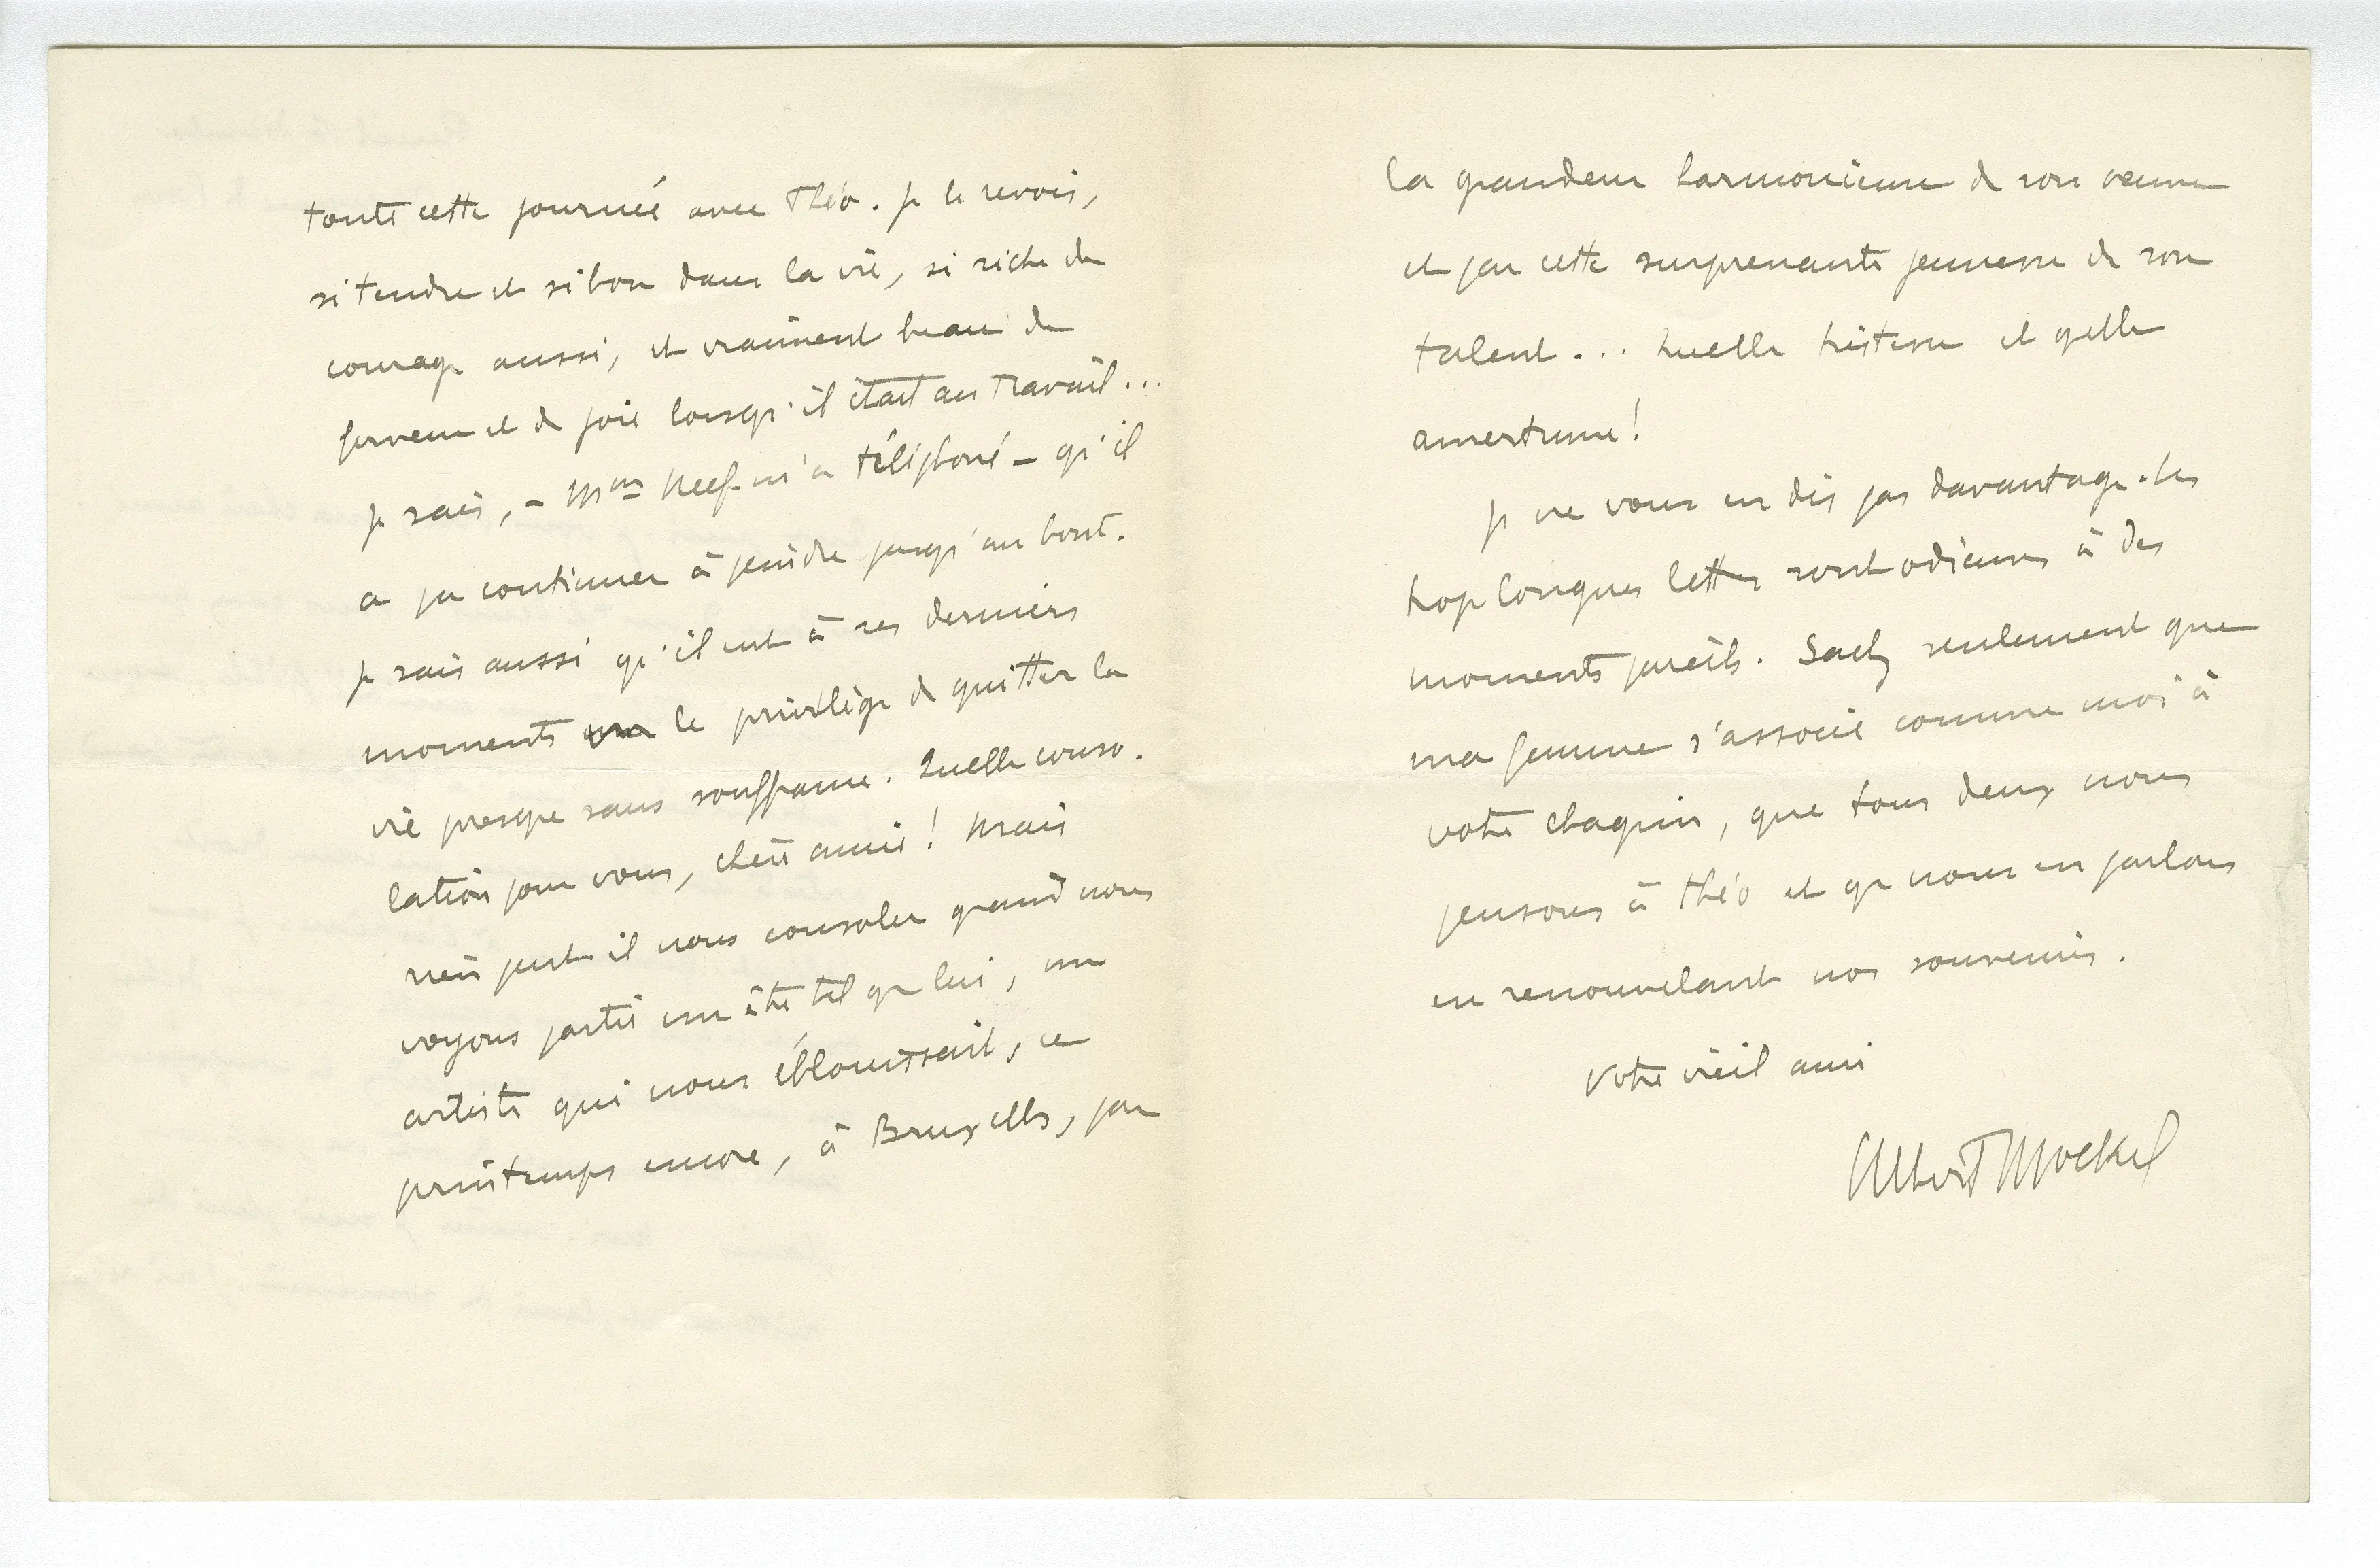 toute cette journée avec Théo. Je le revois,
si tendre et si bon dans la vie, si riche de
courage aussi, et vraiment beau de
ferveur et de joie lorsqu'il était au travail...
Je sais, – Mme Neef m'a téléphoné – qu'il
a pu continuer à peindre jusqu'au bout.
Je sais aussi qu'il eut à ses derniers
moments le privilège de quitter la
vie presque sans souffrance. Quelle conso-
lation pour vous, chère amie! Mais
rien peut-il nous consoler quand nous
voyons partir un être tel que lui, un
artiste qui nous éblouissait, ce
printemps encore, à Bruxelles, par
la grandeur harmonieuse de son œuvre
et par cette surprenante jeunesse de son
talent... Quelle tristesse et quelle
amertume!
Je ne vous en dis pas davantage. Les
trop longues lettres sont odieuses à des
moments pareils. Sachez seulement que
ma femme s'associe comme moi à
votre chagrin, que tous deux nous
pensons à Théo et que nous en parlons
en renouvelant nos souvenirs.
Votre vieil ami
Albert Mockel